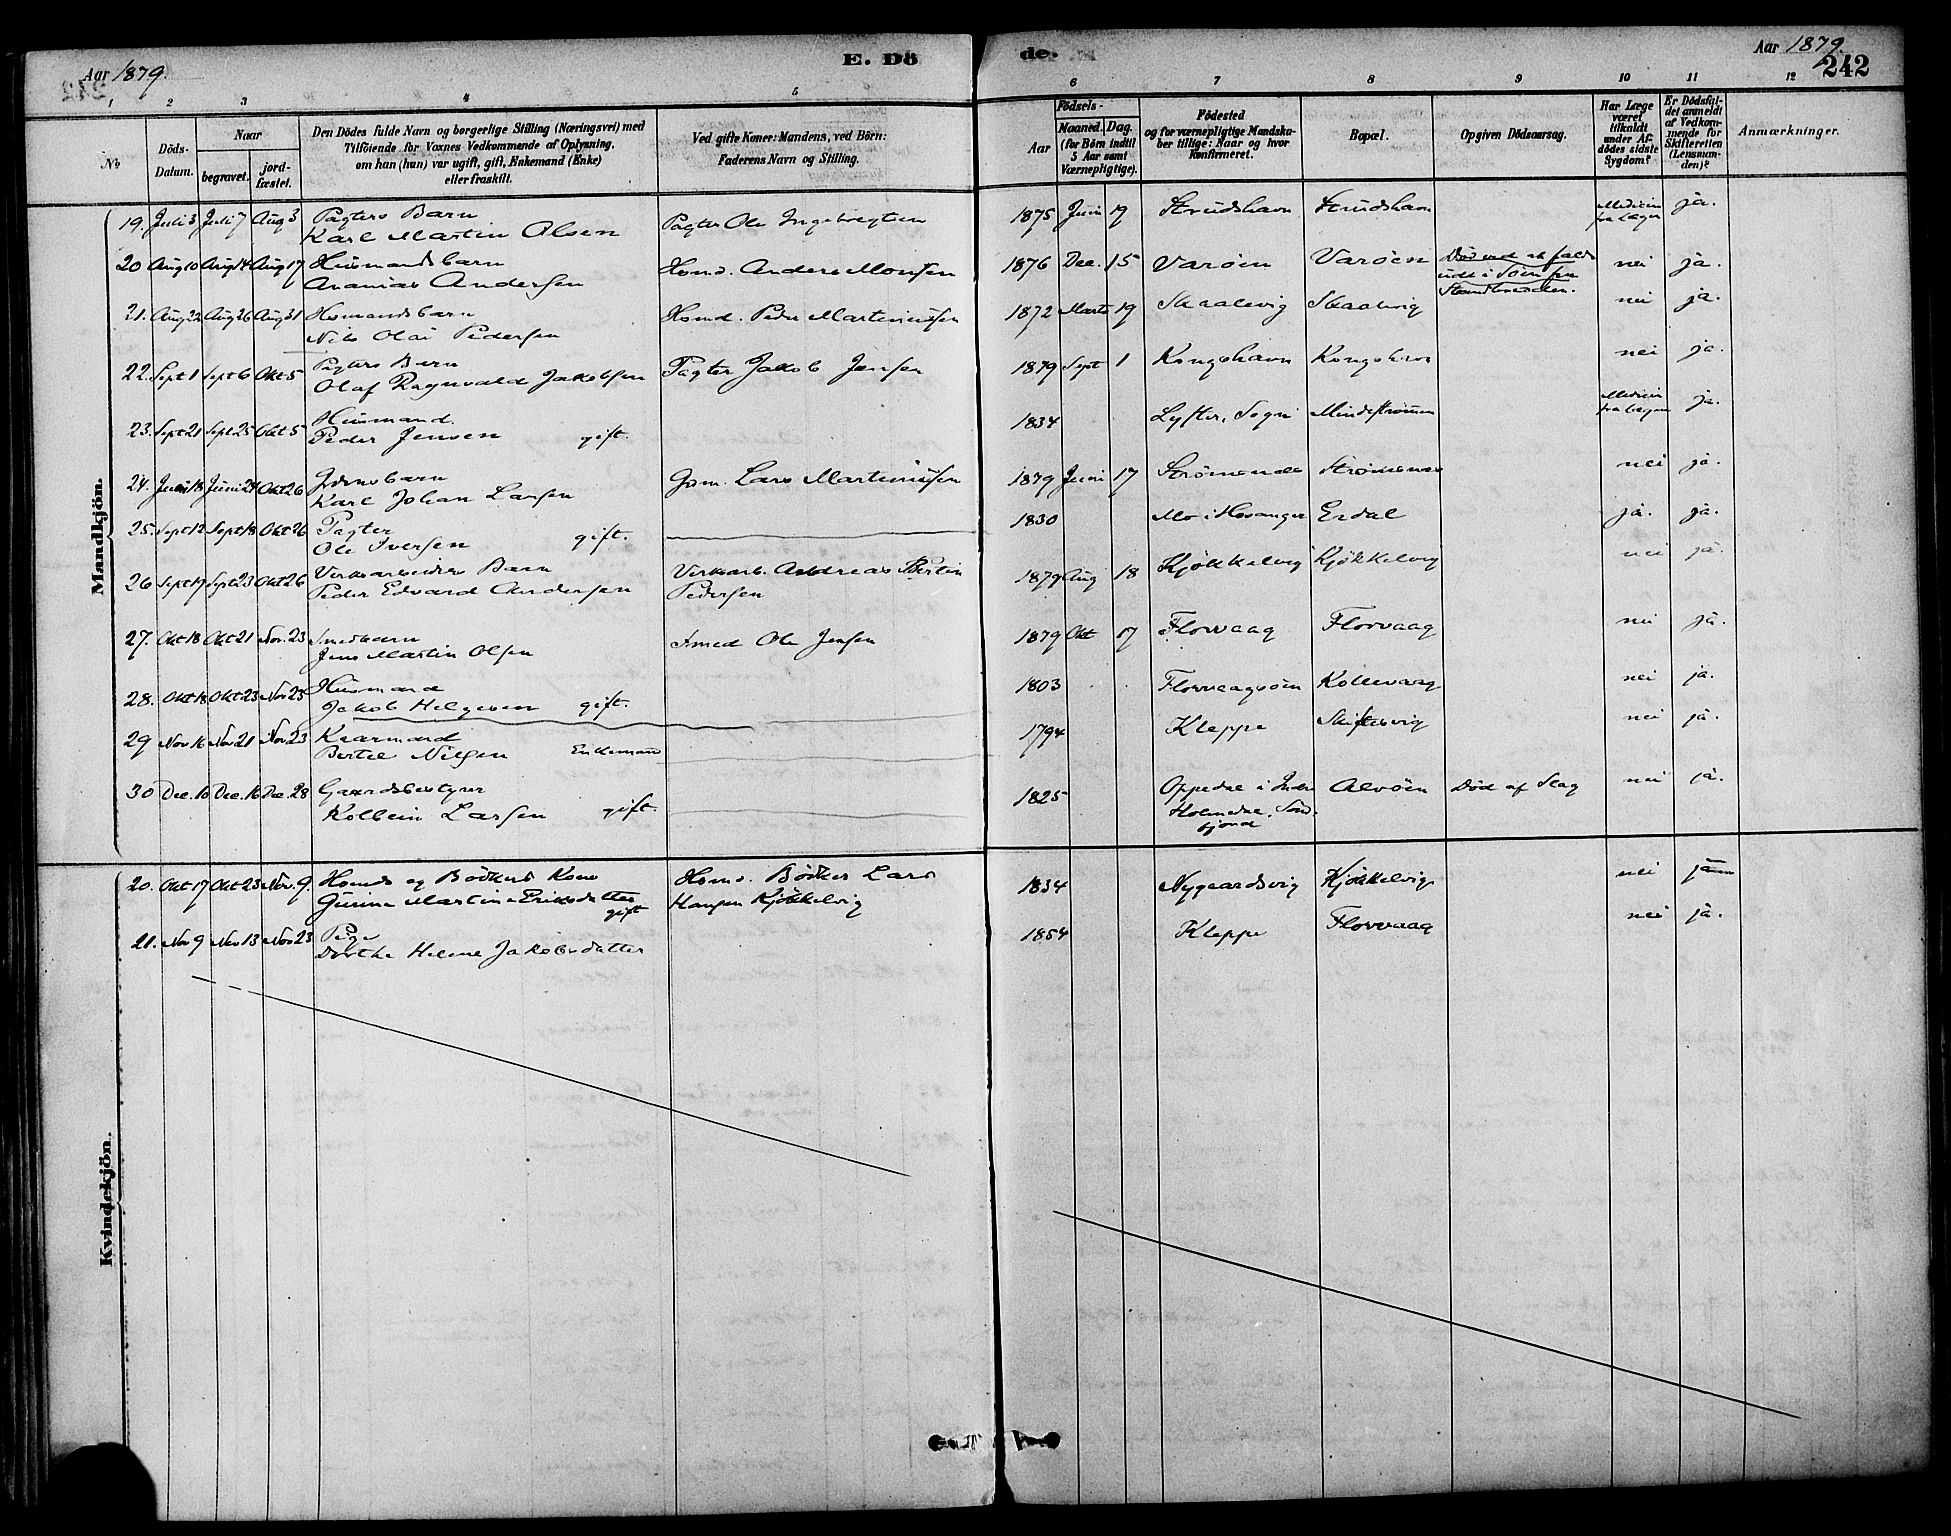 Aar 1879.
E. Dö
de.
Aar 1879.
242
1 2 3 4 5 6 7 8 9 10 11 12
No
Döds-Datum.
Naar
begravet.
jord-fæstet.
Den Dödes fulde Navn og borgerlige Stilling (Næringsvei) med
Tilföiende for Voxnes Vedkommende af Oplysning,
om han (hun) var ugift, gift, Enkemand (Enke)
eller fraskilt.
Ved gifte Koner: Mandens, ved Börn:
Faderens Navn og Stilling.
Födsels-
Aar
Maaned. Dag.
(for Börn indtil
5 Aar samt
Værnepligtige).
Födested
og for værnepligtige Mandska-
ber tillige: Naar og hvor
Konfirmeret.
Bopæl.
Opgiven Dödsaarsag.
Har Læge
været
tilkaldt
under Af-
dödes sidste
Sygdom?
Er Dödsfal-
det anmeldt
af Vedkom-
mende for
Skifteretten
(Lensman-
den)?
Anmærkninger.
Mandkjön.
19. Juli 3 Juli 7 Aug 3 Pagters Barn
Karl Martin Olsen Pagter Ole Ingebregtsen 1875 Juni 19 Strudshavn Strudshavn Medicin fra Læger ja.
20 Aug 10 Aug 14 Aug 17 Husmandsbarn
Ananias Andersen Hsmd. Anders Monsen 1876 Dec. 15 Varöen Varöen Död ved at falde
ude i Söen fra
nei ja.
21. Aug 22 Aug 26 Aug 31 Hsmandsbarn
Nils Olai Pedersen Hsmd. Peder Martinussen 1872 Marts 19 Skaalevig Skaalevig nei ja.
22. Sept 1 Sept 6 Okt 5 Pagters Barn
Olaf Ragnvald Jakobsen Pagter Jakob Jensen 1879 Sept 1 Kongshavn Kongshavn nei ja.
23. Sept 21 Sept 25 Okt 5 Husmand.
Peder Jensen gift. 1834 Lyster, Sogn Mindeströmmen Medicin fra Lægen ja.
24. Juni 18 Juni 24 Okt 26
Karl Johan Larsen Lars Martinussen 1879 Juni 17 Strömsnes Strömsnes nei ja.
25. Sept 12 Sept 18 Okt 26 Pagter
Ole Iversen gift. 1830 Mo i Hosanger Erdal ja. ja.
26 Sept 19 Sept 23 Okt 26 Verksarbeiders Barn
Peder Edvard Andersen Verksarb. Andreas Bertin
Pedersen 1879 Aug 18 Kjökkelvig Kjökkelvig nei ja.
27. Okt 18 Okt 21 Nov. 23 Smedbarn
Jens Martin Olsen Smed Ole Jensen 1879 Okt 17 Florvaag Florvaag nei ja.
28. Okt 18 Okt 23 Nov 23 Husmand
Jakob Helgesen gift. 1803 Florvaagsöen Kollevaag nei ja.
29 Nov 16 Nov 21 Nov 23 Kaarmand
Bertel Nilsen Enkemand 1794 Kleppe Skiftesvig nei ja.
30 Dec. 10 Dec. 16 Dec. 28 Gaardsbestyrer
Kolbein Larsen gift. 1825 Oppedal i Indre
Holmedal, Sönd-
fjord Alvöen Död af Slag nei ja.
Kvindekjön.
20. Okt 17 Okt 23 Nov. 9. Hsmds og Bödkers Kone
Gunna Martine Eriksdatter
gift Hsmd. Bödker Lars
Hansen Kjökkelvig 1834 Nygaardsvig Kjökkelvig nei ja
21. Nov 9 Nov 13 Nov 23 Pige
Dorthe Helene Jakobsdatter 1854 Kleppe Florvaag nei ja.